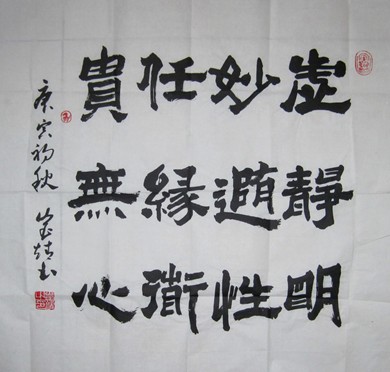 虚靜明
妙適性
任緣
貴無心
庚寅初秋 書